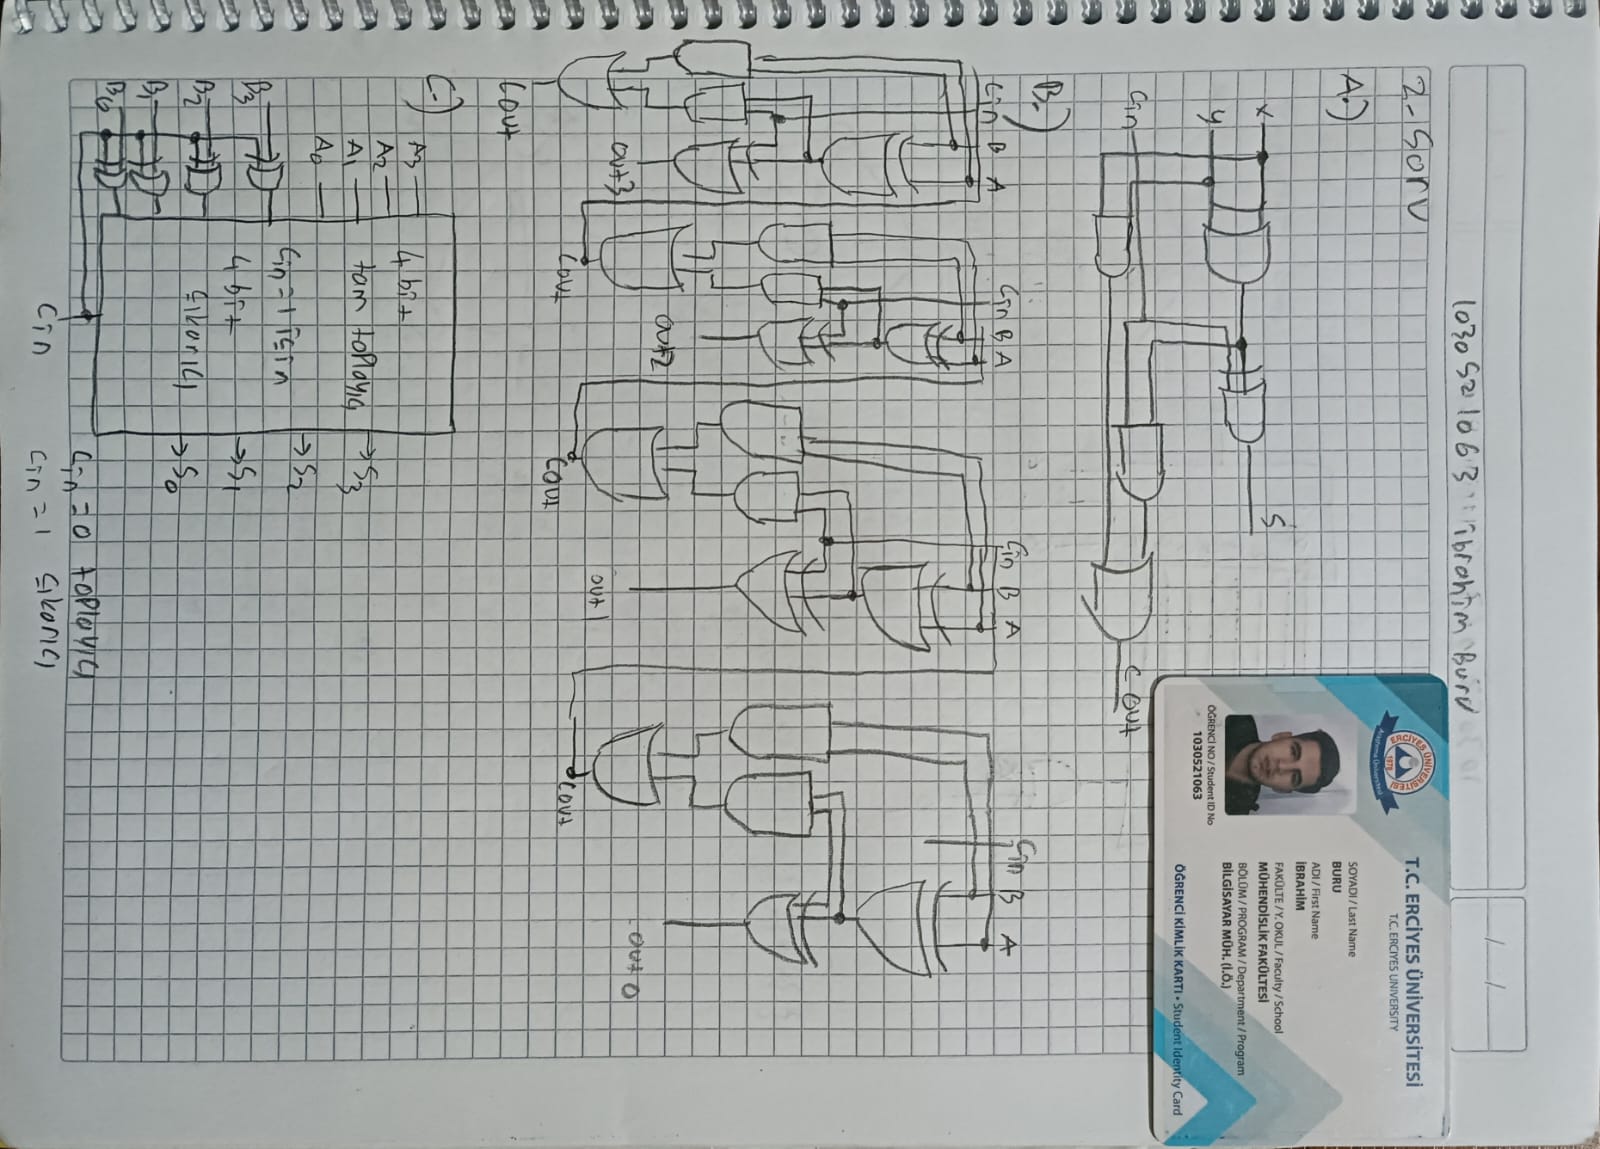 1030521063 ibrahim Buru
2-Soru
ERCİYES ÜNİVERSİTESİ
1978
Araştırma Üniversitesi
T.C. ERCİYES ÜNİVERSİTESİ
T.C. ERCIYES UNIVERSITY
SOYADI / Last Name
BURU
ADI / First Name
İBRAHİM
FAKÜLTE / Y. OKUL / Faculty / School
MÜHENDİSLİK FAKÜLTESİ
BÖLÜM / PROGRAM / Department / Program
BİLGİSAYAR MÜH. (İ.Ö.)
ÖĞRENCİ NO / Student ID No
1030521063
ÖĞRENCİ KİMLİK KARTI • Student Identity Card
A.)
x
y
Cin
S
C out
B.)
Cin B A
Cin B A
Cin B A
Cin B A
out3
out2
out1
out0
Cout
Cout
Cout
Cout
C.)
A3
A2
A1
A0
B3
B2
B1
B0
4 bit
tam toplayıcı
Cin=1 için
4 bit
çıkarıcı
S3
S2
S1
S0
Cin
Cin=0 toplayıcı
Cin=1 çıkarıcı